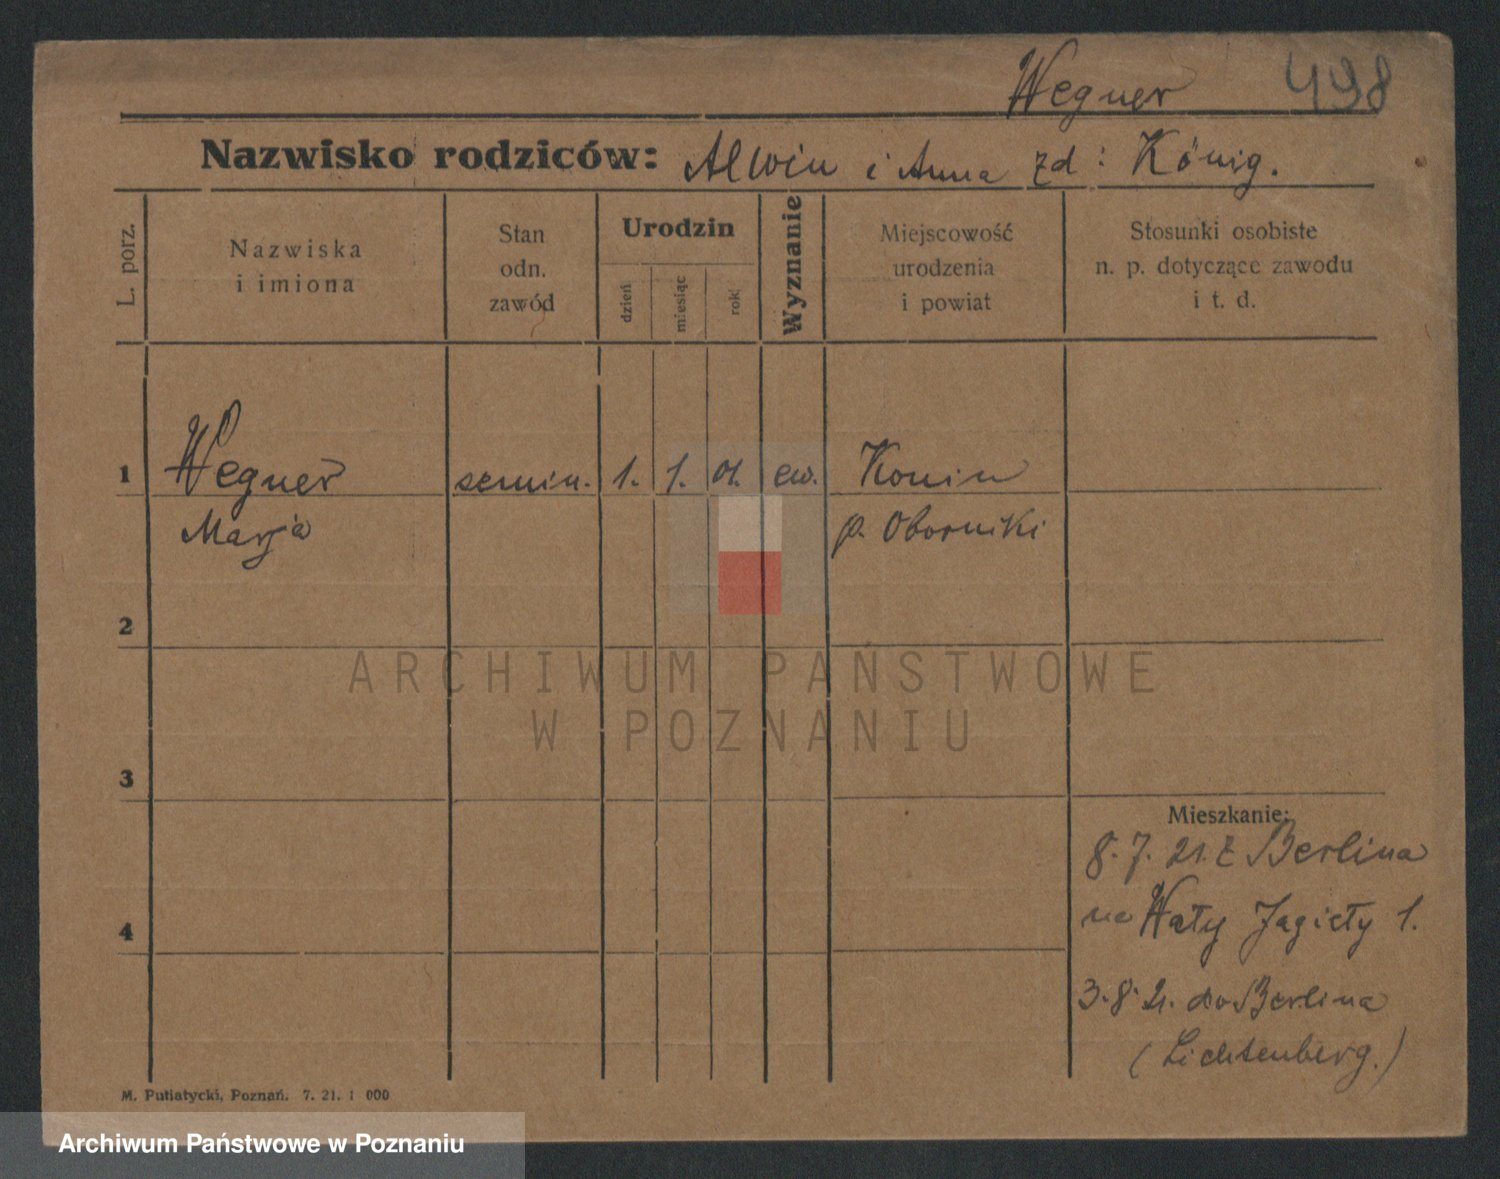 Wegner 498
Nazwisko rodziców: Alwin i Anna zd: König.
L. porz.
Nazwiska
i imiona
Stan
odn.
zawód
Urodzin
dzień
miesiąc
rok
Wyznanie
Miejscowość
urodzenia
i powiat
Stosunki osobiste
n. p. dotyczące zawodu
i t. d.
1 Wegner semin. 1. 1. 01. ew. Konin
Marja p. Oborniki
2
ARCHIWUM PAŃSTWOWE
W POZNANIU
3
Mieszkanie:
8. 7. 21. z Berlina
na Wały Jagiełły 1.
4
3. 8. 21. do Berlina
(Lichtenberg.)
M. Putiatycki, Poznań. 7. 21. 1 000
Archiwum Państwowe w Poznaniu